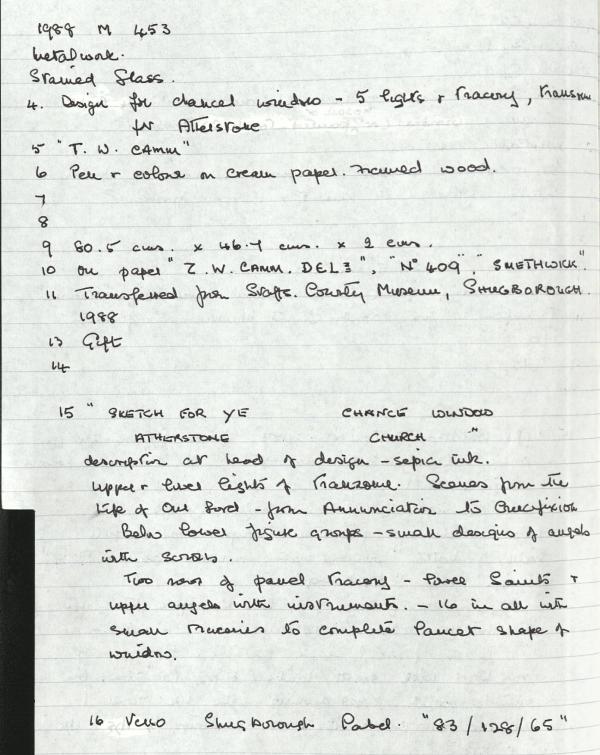 1988 M 453
Metalwork.
Stained Glass.
4. Design for chancel window - 5 lights + Tracery,
for Atherstone
5 "T. W. CAMM"
6 Pen + colour on cream paper. Framed wood.
7
8
9 80.5 cms. x 46.7 cms. x 2 cms.
10 on paper "T. W. CAMM. DELT", "No 409", "SMETHWICK".
11 Transferred from Staffs. County Museum, SHUGBOROUGH.
1988
13 Gift
14
15 "SKETCH FOR YE CHANCE WINDOW
ATHERSTONE CHURCH"
description at head of design - sepia ink.
Upper + lower lights of Transome. Scenes from the
Life of Our Lord - from Annunciation to Crucifixion
Below lower figure groups - small designs of angels
with scrolls.
Two rows of panel Tracery - lower Saints +
upper angels with instruments. - 16 in all with
small traceries to complete lancet shape of
window.
16 Verso Shugborough Label. "83/128/65"